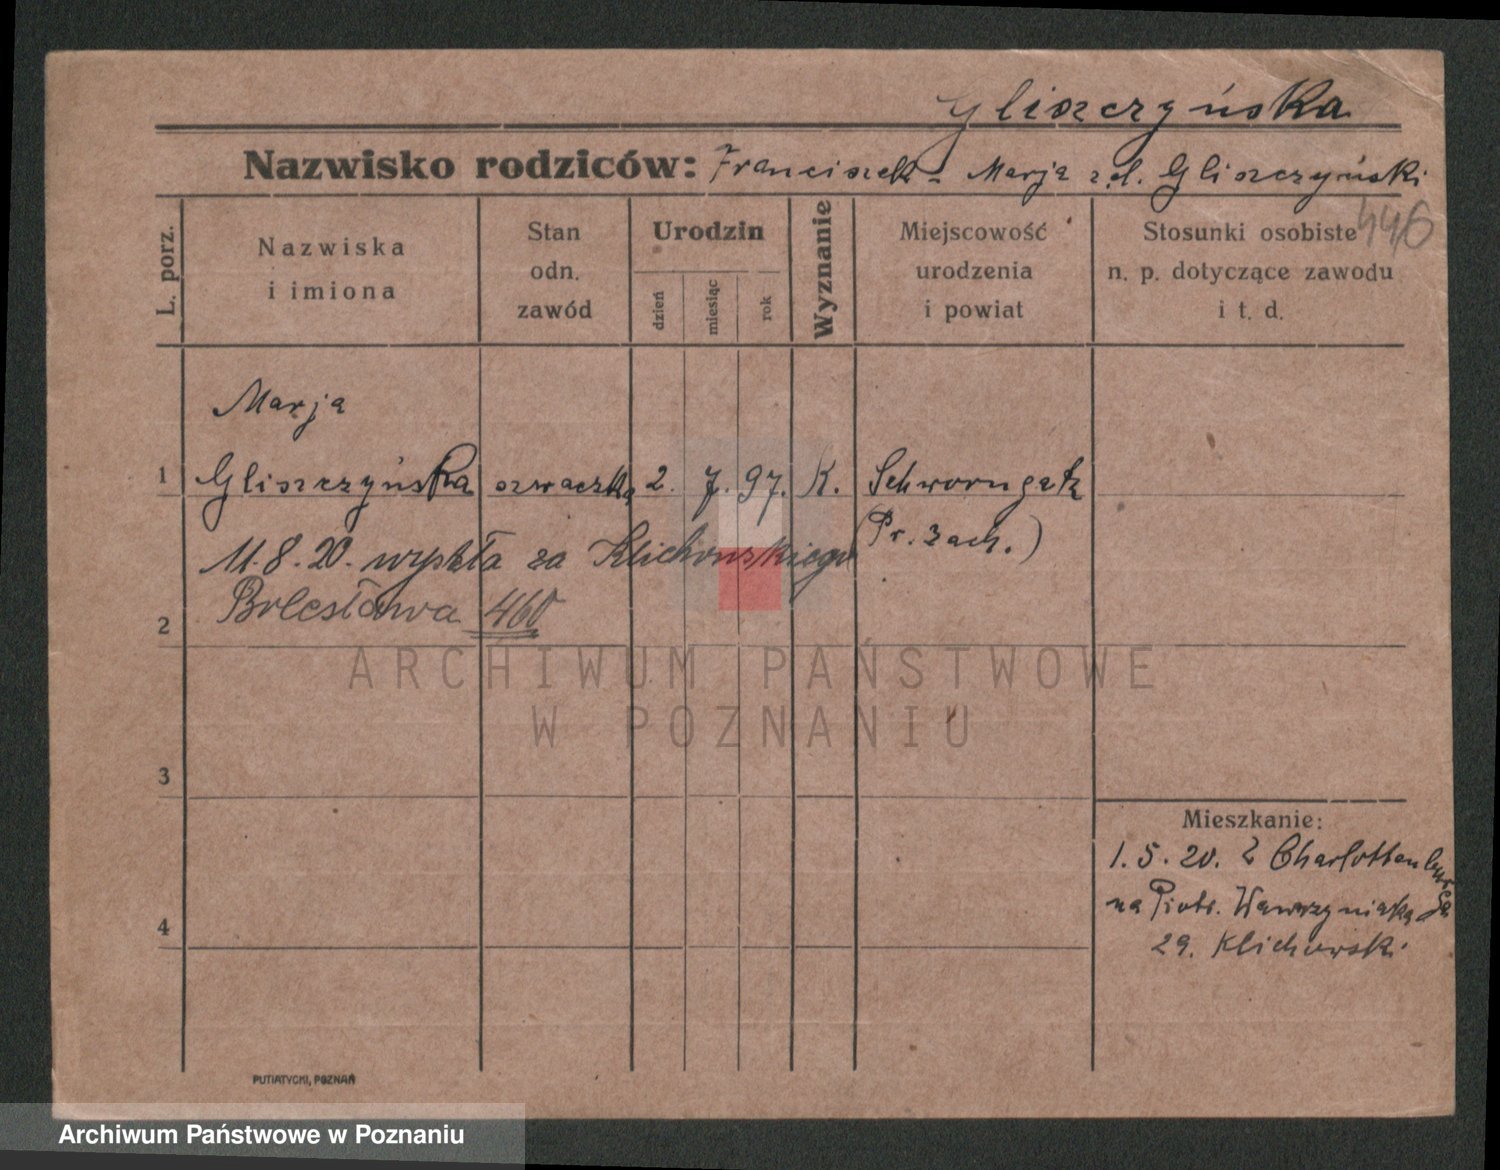 Gliszczyńska
Nazwisko rodziców: Franciszek - Marja z d. Gliszczyński
446
L. porz.
Nazwiska
i imiona
Stan
odn.
zawód
Urodzin
dzień
miesiąc
rok
Wyznanie
Miejscowość
urodzenia
i powiat
Stosunki osobiste
n. p. dotyczące zawodu
i t. d.
Marja
1 Gliszczyńska szwaczka 2. 7. 97. K. Schworngatz
(Pr. zach.)
11.8.20. wyszła za Klichowskiego
Bolesława 460
2
ARCHIWUM PAŃSTWOWE
W POZNANIU
3
Mieszkanie:
1.5.20. z Charlottenburga
na Piotr. Wawrzyniaka
4
29. Klichowski
PUTIATYCKI, POZNAŃ
Archiwum Państwowe w Poznaniu